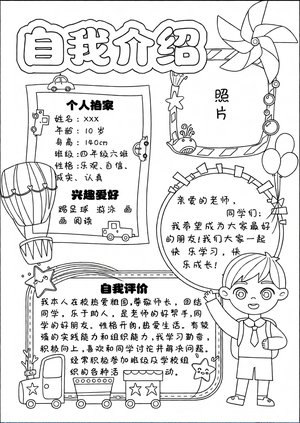 自我介绍
个人档案
姓名：XXX
年龄：10 岁
身高：140cm
班级:四年级六班
性格:乐观、自信、
诚实、认真
兴趣爱好
踢足球 游泳 画
画 阅读
照
片
亲爱的老师，
同学们：
我希望成为大家最好
的朋友!我们大家一起
快乐学习，快
乐成长!
自我评价
我本人在校热爱祖国,尊敬师长，团结
同学，乐于助人，是老师的好帮手,同
学的好朋友。性格开朗,热爱生活。有较
强的实践能力和组织能力,我学习勤奋，
积极向上,喜欢和同学讨论并解决问题。
经常积极参加班级及学校组
织的各种活动。